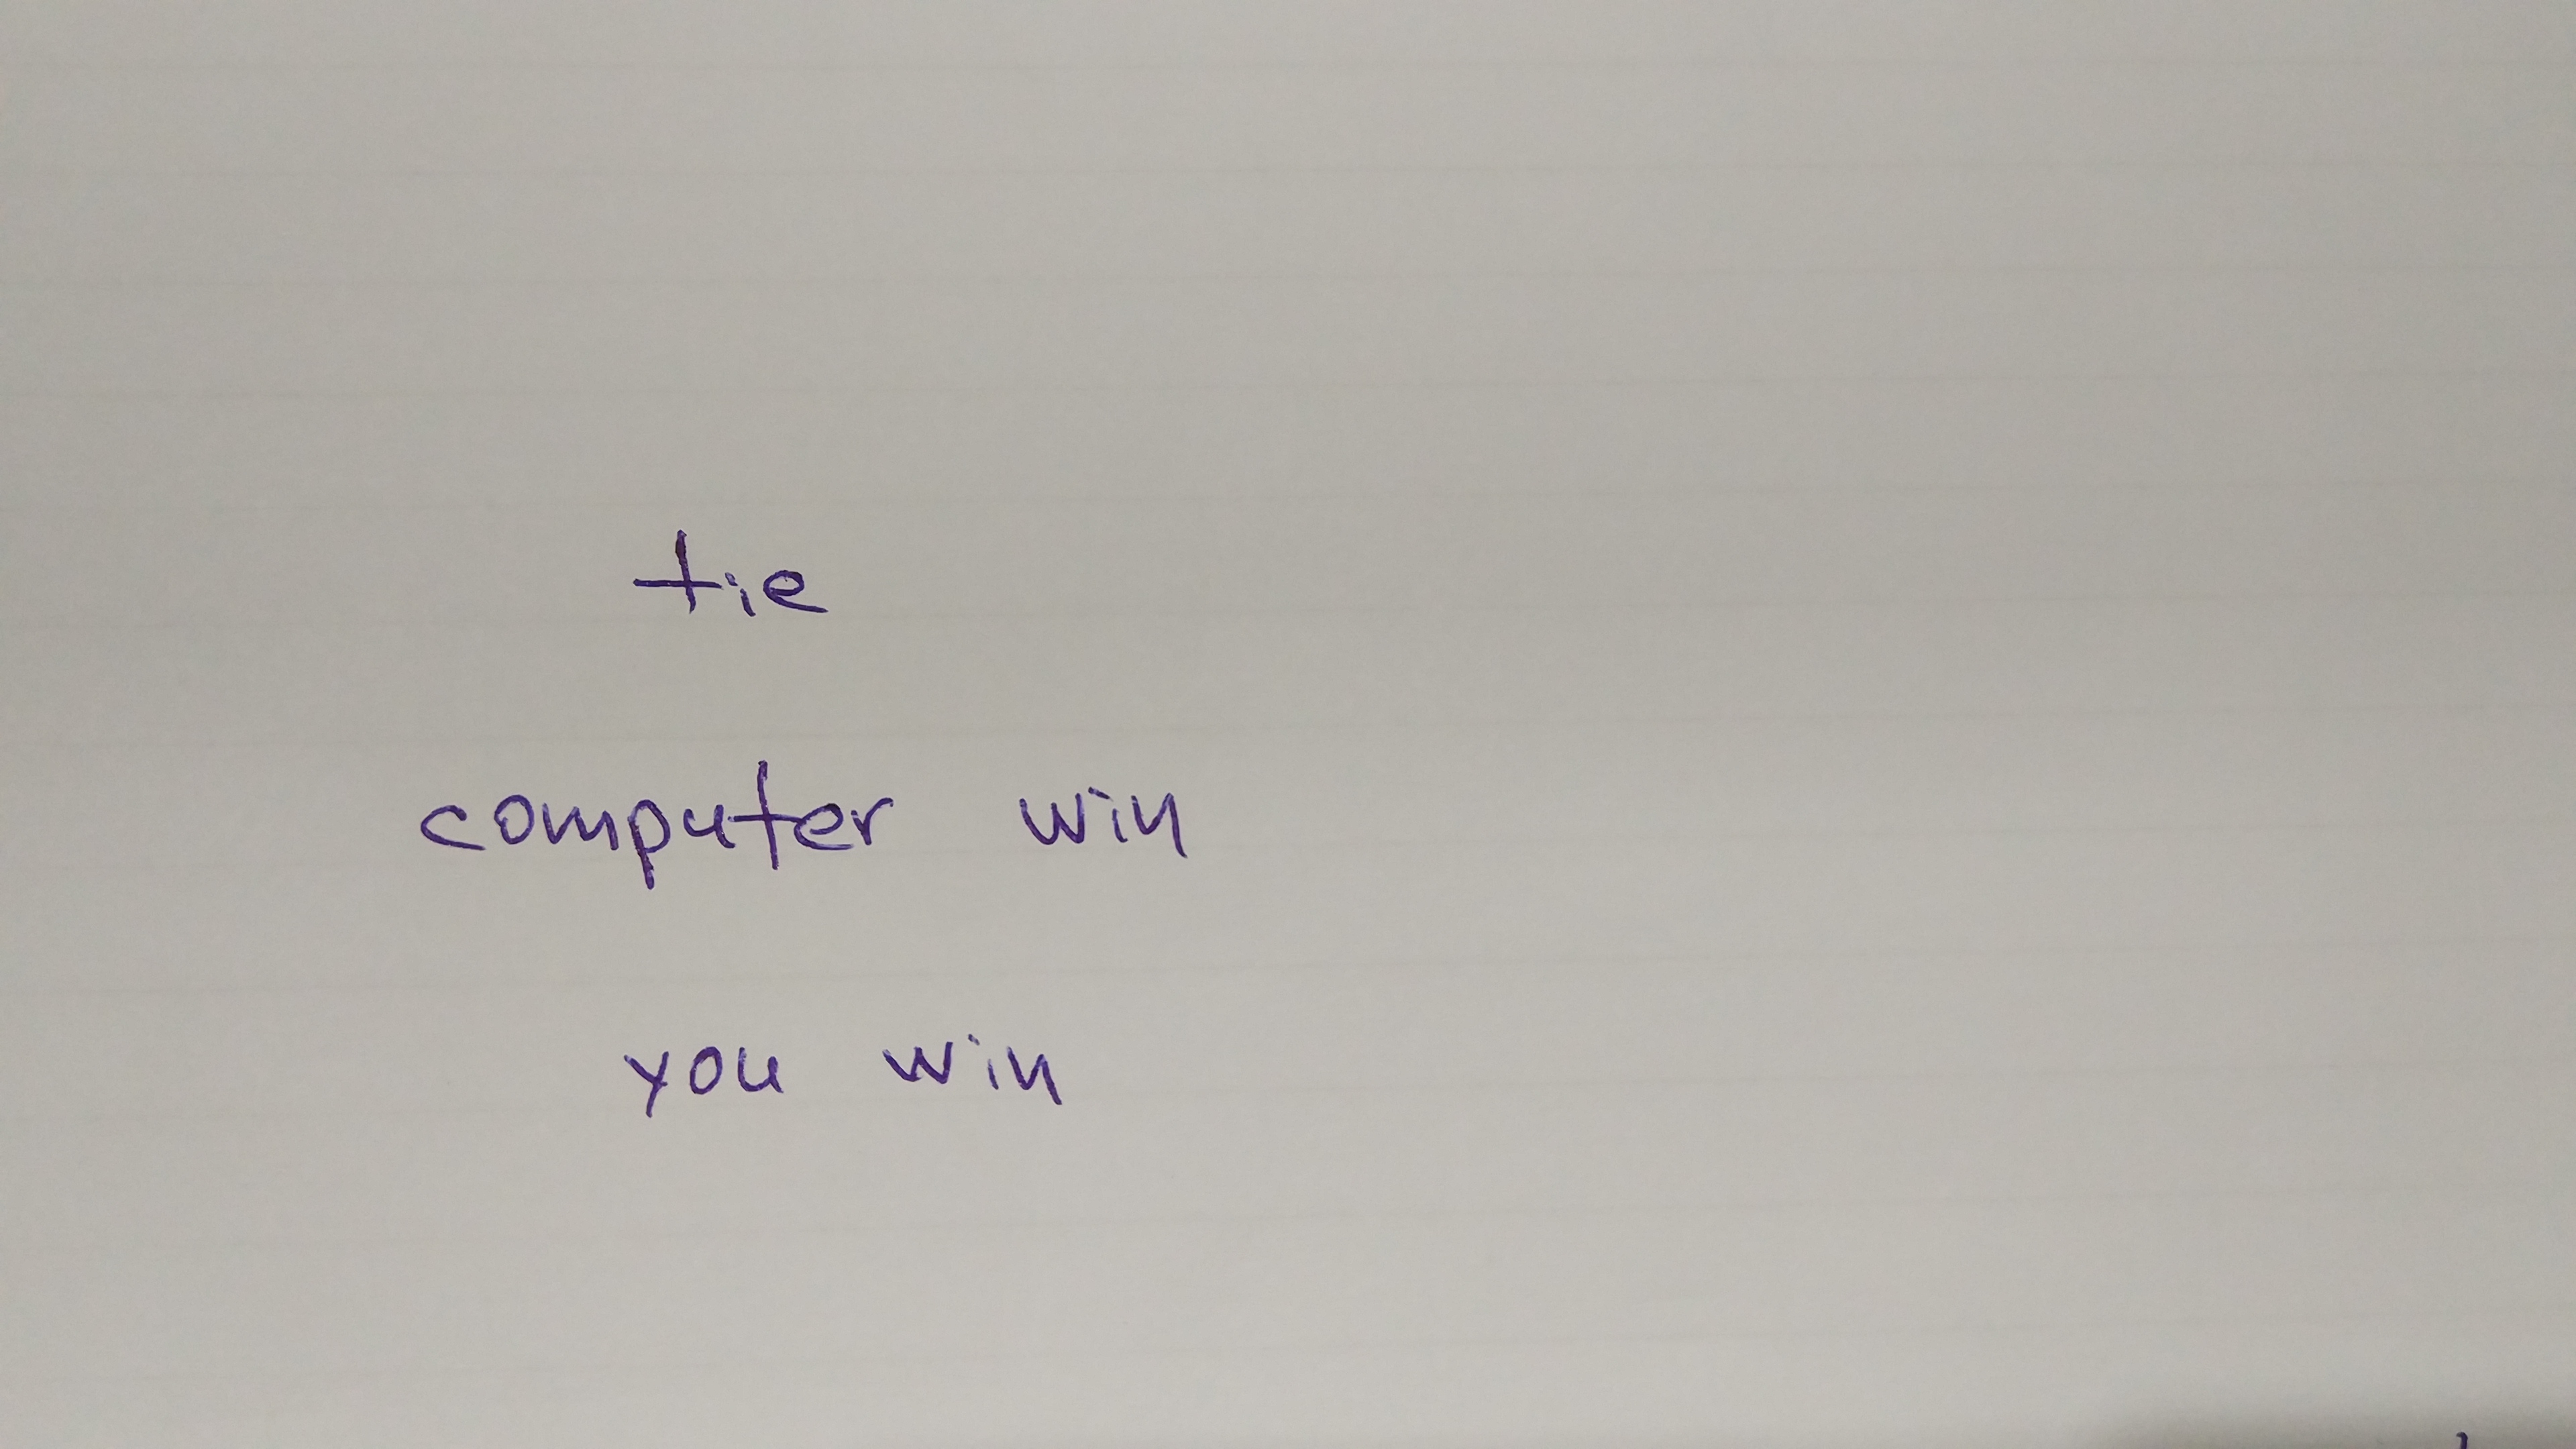 tie
computer win
you win